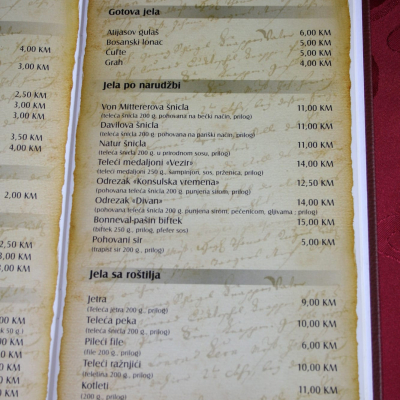 4,00 KM
3,00 KM
2,50 KM
3,00 KM
3,00 KM
3,50 KM
4,00 KM
2,00 KM
2,50 KM
3,00 KM
3,00 KM
Gotova jela
Alijasov gulaš 6,00 KM
Bosanski lonac 5,00 KM
Ćufte 5,00 KM
Grah 4,00 KM
Jela po narudžbi
Von Mittererova šnicla 11,00 KM
(teleća šnicla 200 g. pohovana na bečki način, prilog)
Davilova šnicla 11,00 KM
(teleća šnicla 200 g. pohovana na pariški način, prilog)
Natur šnicla 11,00 KM
(teleća šnicla 200 g. u prirodnom sosu, prilog)
Teleći medaljoni »Vezir« 14,00 KM
(teleći medaljoni 250 g., šampinjoni, sos, prženica, prilog)
Odrezak »Konsulska vremena« 12,50 KM
(pohovana teleća šnicla 200 g. punjena sirom, prilog)
Odrezak »Divan« 14,00 KM
(pohovana teleća šnicla 200 g. punjena sirom, pečenicom, gljivama ; prilog)
Bonneval-pašin biftek 15,00 KM
(biftek 250 g., prilog, pfefer sos)
Pohovani sir 5,00 KM
(trapist sir 200 g., prilog)
Jela sa roštilja
Jetra 9,00 KM
(Teleća jetra 200 g., prilog)
Teleća peka 10,00 KM
(teleća šnicla 200 g., prilog)
Pileći file 6,00 KM
(file 200 g., prilog)
Teleći ražnjići 10,00 KM
(teletina 200 g., prilog)
Kotleti 11,00 KM
(200 g., prilog)